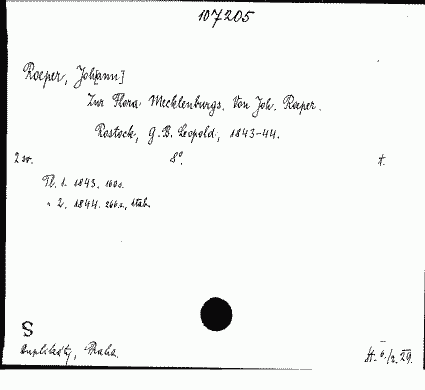 107205
Roeper, Joh[ann]
Zur Flora Mecklenburgs. Von Joh. Roeper.
Rostock, G. B. Leopold, 1843-44.
2 sv. 8°.
Tl. 1. 1843. 160 s.
" 2. 1844. 266 s., 1 tab.
S
Duplikáty, Praha.